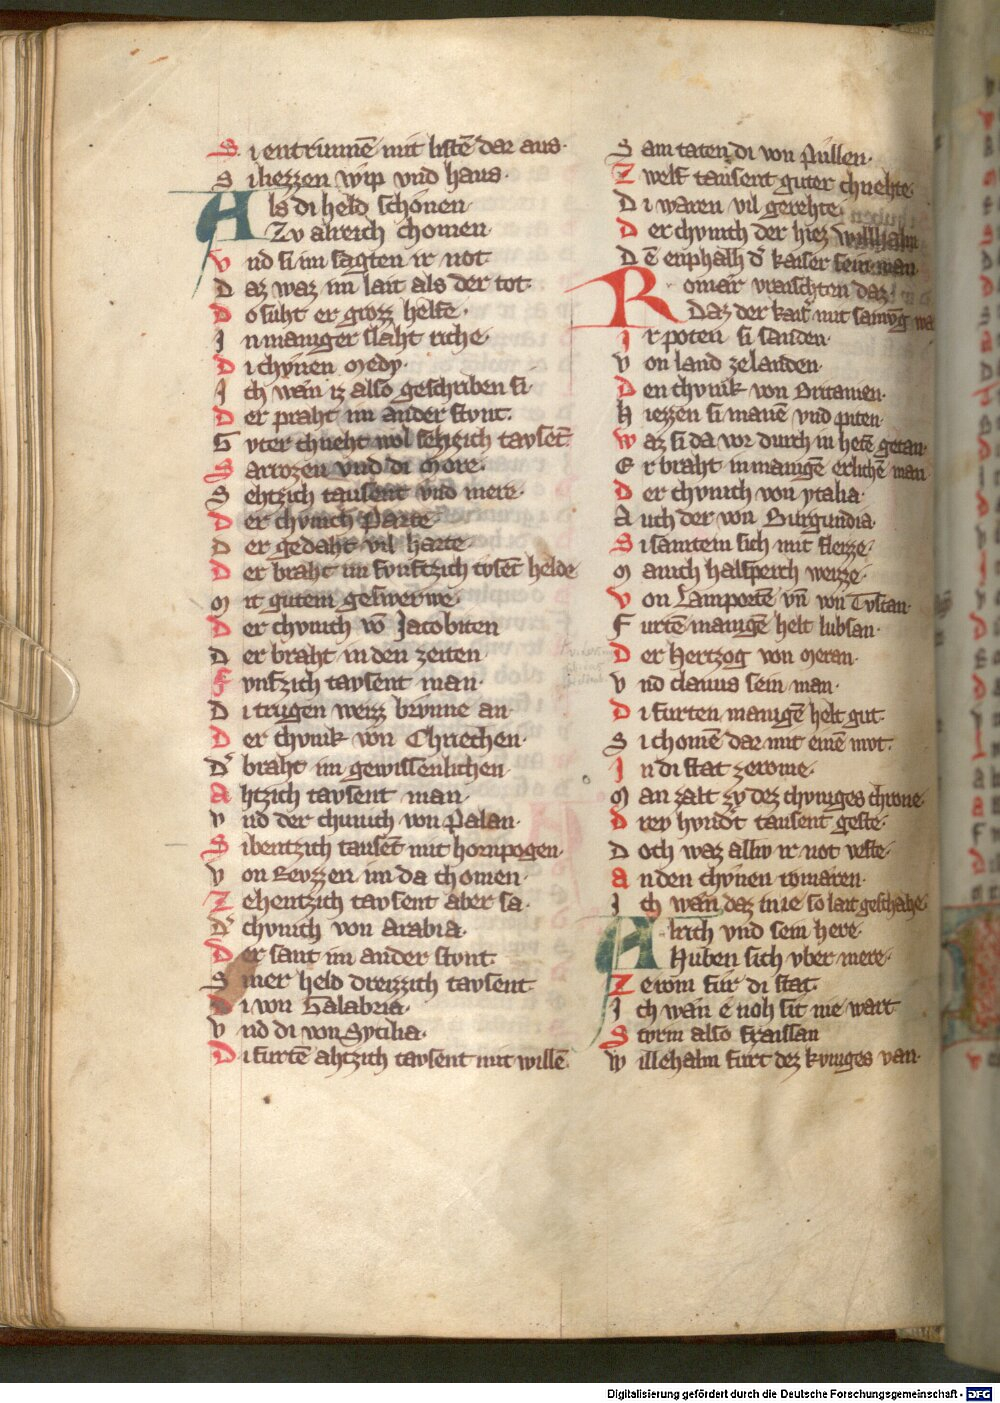 Si entrunnē mit listē dar aus·
Si liezzen wip vnd haus·
Als di held schonen·
Zv alreich chomen·
Vnd si im sagten ir not·
Daz waz im lait als der tot·
Do suht er grozz helfe·
In maniger slaht riche·
Di chynen Medy·
Ich wän iz also geschriben si·
Der praht im ander stvnt·
Gvter chneht wol sehzich tavsēt
Sarrozen vnd di More·
Sehtzich tausent vnd mere·
Der chvnich Parte
Der gedaht vil harte·
Der braht im fvnftzich tvsēt helde·
Mit gutem geswerwe·
Der chvnich vō Jacobiten
Der braht in den zeiten·
Fvnfzich tavsent man·
Di trugen weizz brvnne an·
Der chvnik von Chriechen·
Dˀ braht im gewissenlichen·
Ahtzich tavsent man·
Vnd der chunich von Palan·
Sibentzich tausēt mit hornpogen·
Von Revzzen im da chomen·
Zehentzich tavsent aber sa·
Dˀ chvnich von Arabia·
Der sant im ander stvnt
Siner held dreizzich tavsent
Di von Galabria·
Vnd di von Sycilia·
Di furtē ahtzich tavsent mit willē·
Sam taten di von Püllen·
Zwelf tausent guter chnehte·
Di waren vil gerehte·
Der chvnich der hiez willhalm
Dē enphalh dˀ kaiser sein man
Romär vraischten daz·
Daz der kaisˀ mit samvg wa
Ir poten si sanden·
Von land zelanden·
Den chvnik von Britanien·
Hiezzen si manē vnd piten·
Waz si da vor durch in hetē getan·
Er braht in manigē erlichē man
Der chvnich von ytalia·
Auch der von Burgundia·
Si samten sich mit flezze·
Manich halsperch weizze·
Von Lamportē vn̄ von Tvscan·
Furtē manigē helt lubsan·
Der Hertzog von Meran·
Vnd clauus sein man·
Di furten manigē helt gut·
Si chomē dar mit einē mvt·
In di stat zerome·
Man zalt zv dez chvniges chrone·
Drev hvndˀt tausent geste·
Doch waz alliv ir not veste·
An den chvnen romären·
Ich wän daz in ie so lait geschahe·
Alrich vnd sein here·
Huben sich vber mere·
Zerom für di stat·
Ich wän e noh sit nie wart
Storm also fraissan
Willehalm furt dez kvniges van·
Digitalisierung gefördert durch die Deutsche Forschungsgemeinschaft - DFG